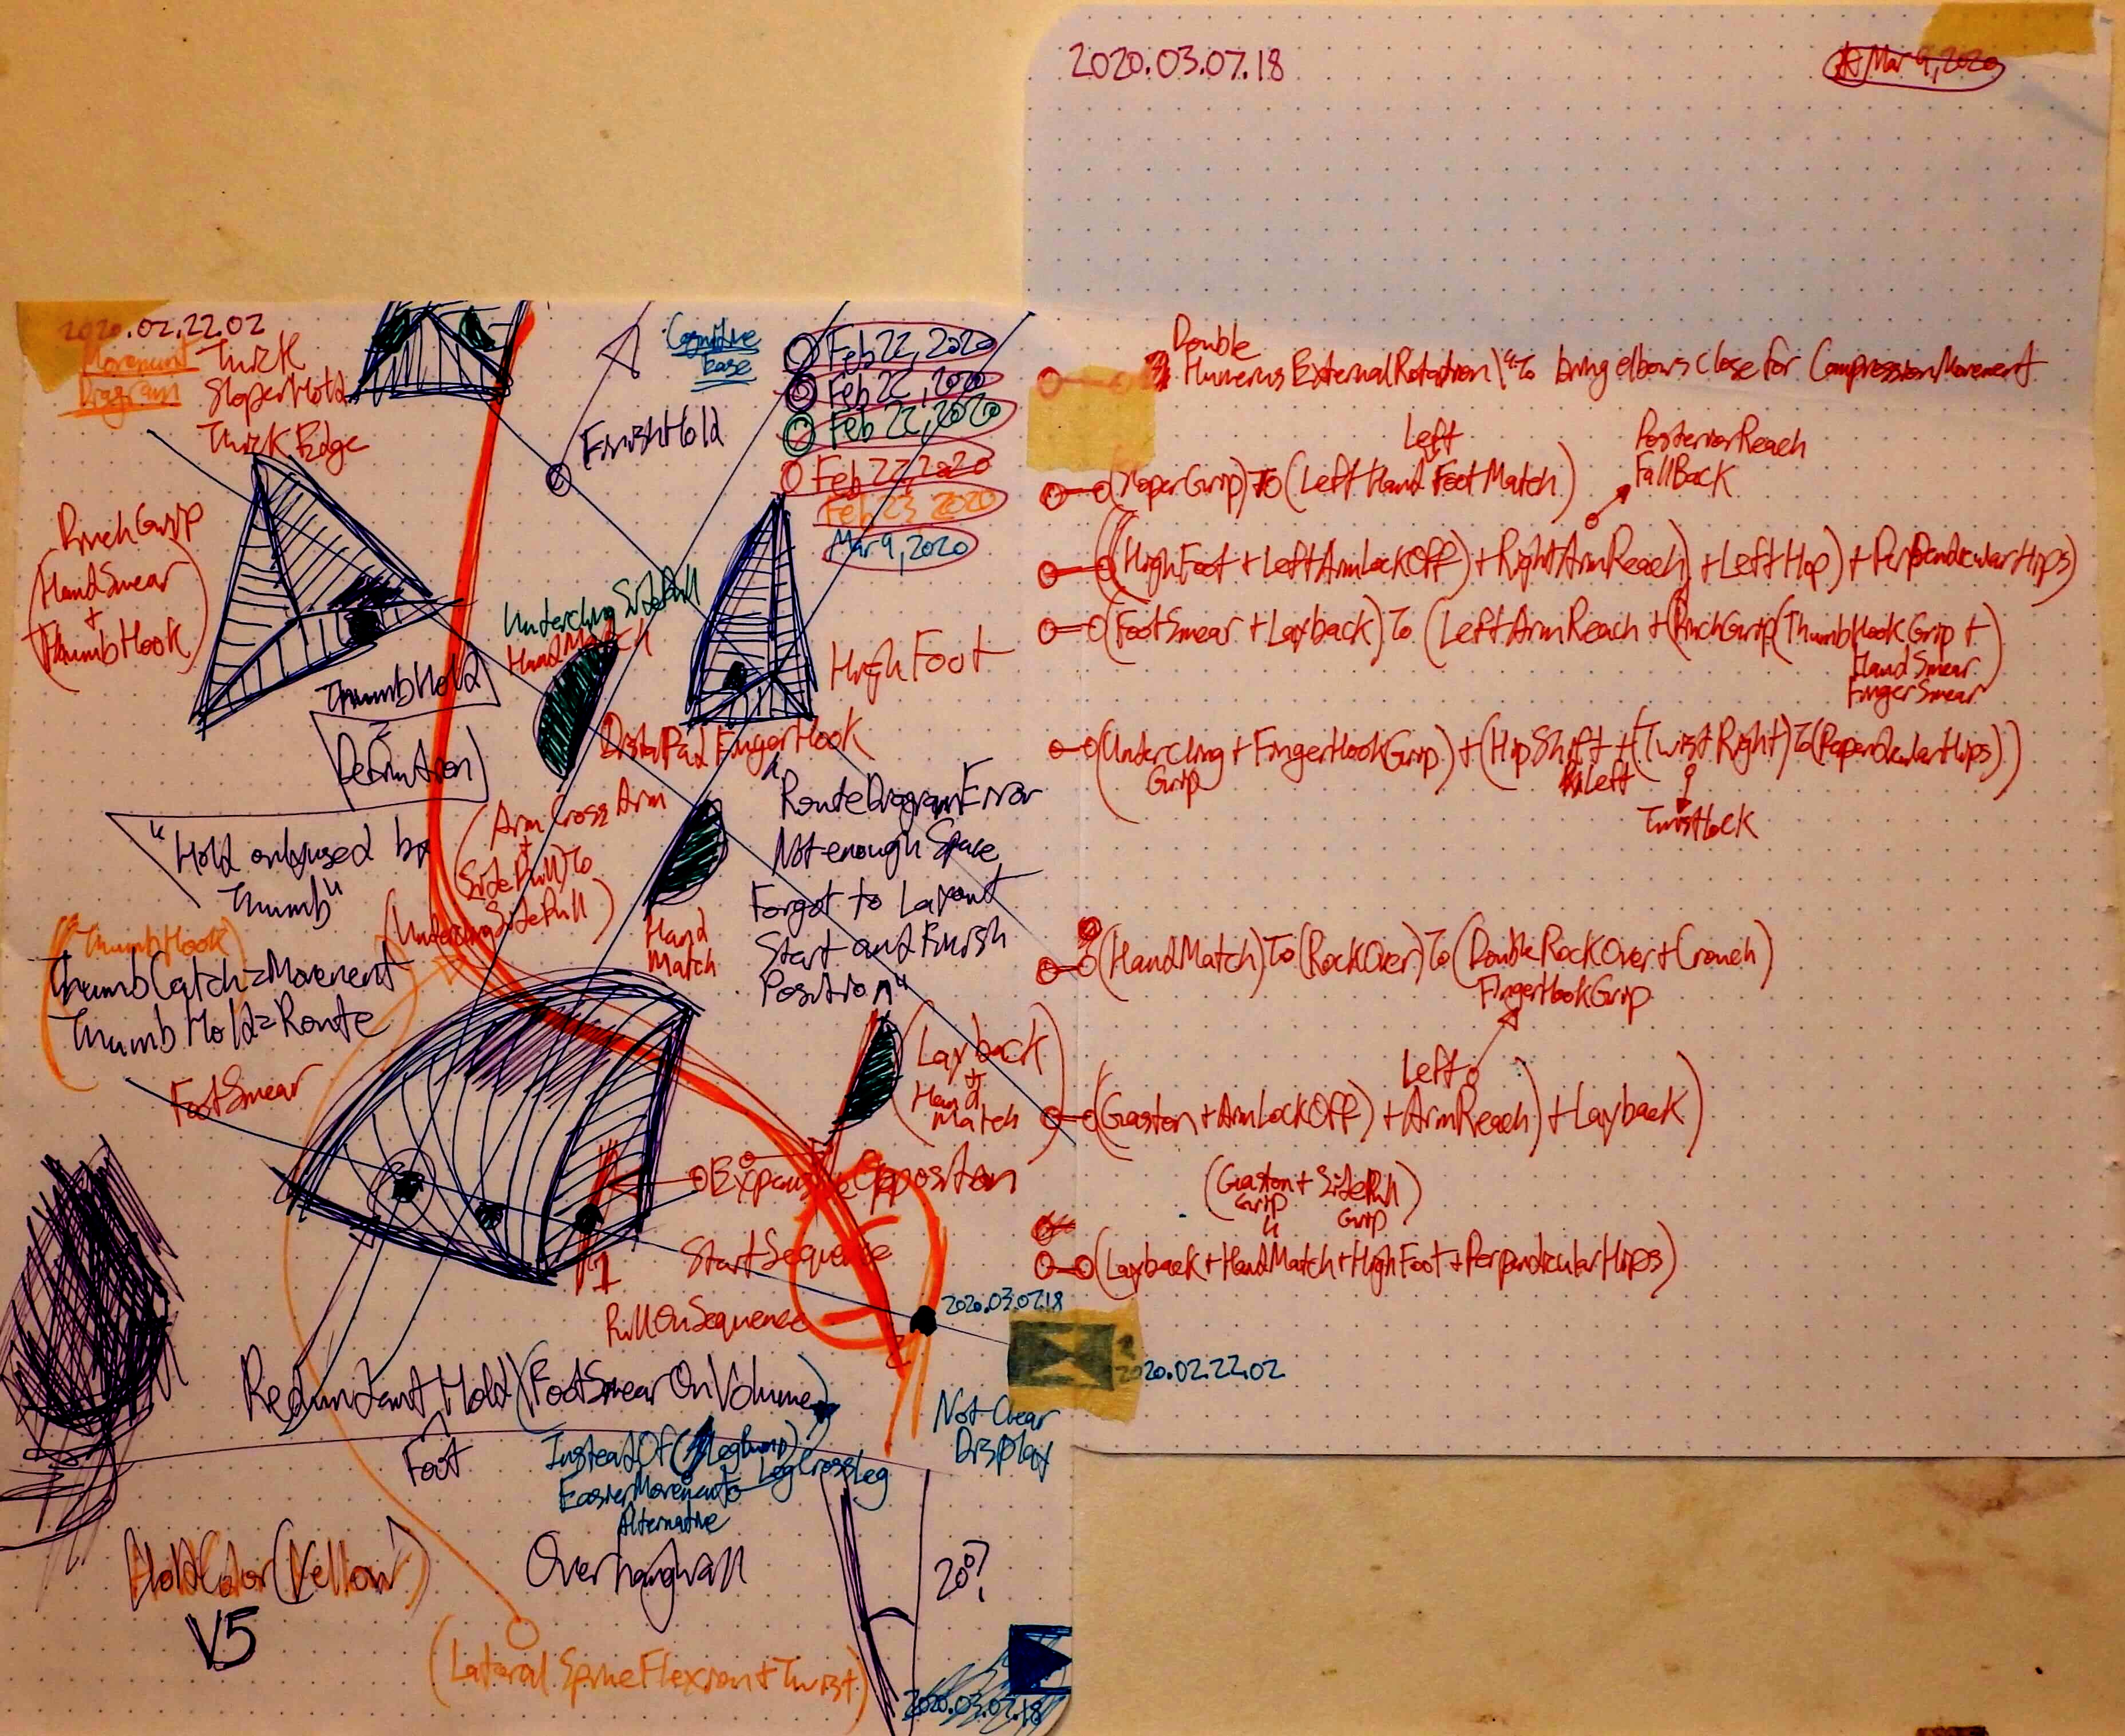 2020.03.07.18
Mar 9, 2020
2020.02.22.02
Movement
Diagram
Thick
SloperHold
ThickEdge
Cognitive
Ease
Feb 22, 2020
Feb 22, 2020
Feb 22, 2020
Feb 22, 2020
Feb 23 2020
Mar 9, 2020
FinishHold
PinchGrip
(HandSmear
+
ThumbHook)
Undercling SidePull
HandMatch
HighFoot
ThumbHold
Definition
DistalPad FingerHook
"Hold only used by
Thumb"
(ArmCrossArm
+
SidePull) To
(UnderclingSidePull)
Hand
Match
"RouteDiagramError
Not enough Space
Forgot to Layout
Start and Finish
Position"
(ThumbHook)
ThumbCatch=Movement
ThumbHold=Route
FootSmear
(Layback
+
Hand
Match)
Expansive Opposition
StartSequence
1
PullOnSequence
2020.03.07.18
2020.02.22.02
RedundantHold(FootSmearOnVolume)
Foot
InsteadOf(LegBump)
LegCrossLeg
EasierMovement
Alternative
Not Clear
Display
HoldColor(Yellow)
V5
OverhangWall
20°?
(Lateral SpineFlexion+Twist)
2020.03.07.18
Double
Humerus ExternalRotation\"To bring elbows close for CompressionMovement
(SloperGrip)To(LeftHand FootMatch)
Left
PosteriorReach
FallBack
(((HighFoot+LeftArmLockOff)+RightArmReach)+LeftHop)+PerpendicularHips)
(FootSmear+Layback)To(LeftArmReach+(PinchGrip(ThumbHookGrip+
HandSmear
FingerSmear
(Undercling+FingerHookGrip)+(HipShift+(TwistRight)To(PerpendicularHips))
Grip
Left
TwistLock
(HandMatch)To(RockOver)To(DoubleRockOver+Crouch)
FingerHookGrip
Left
((Gaston+ArmLockOff)+ArmReach)+Layback)
(Gaston+SidePull)
Grip
Grip
(Layback+HandMatch+HighFoot+PerpendicularHips)